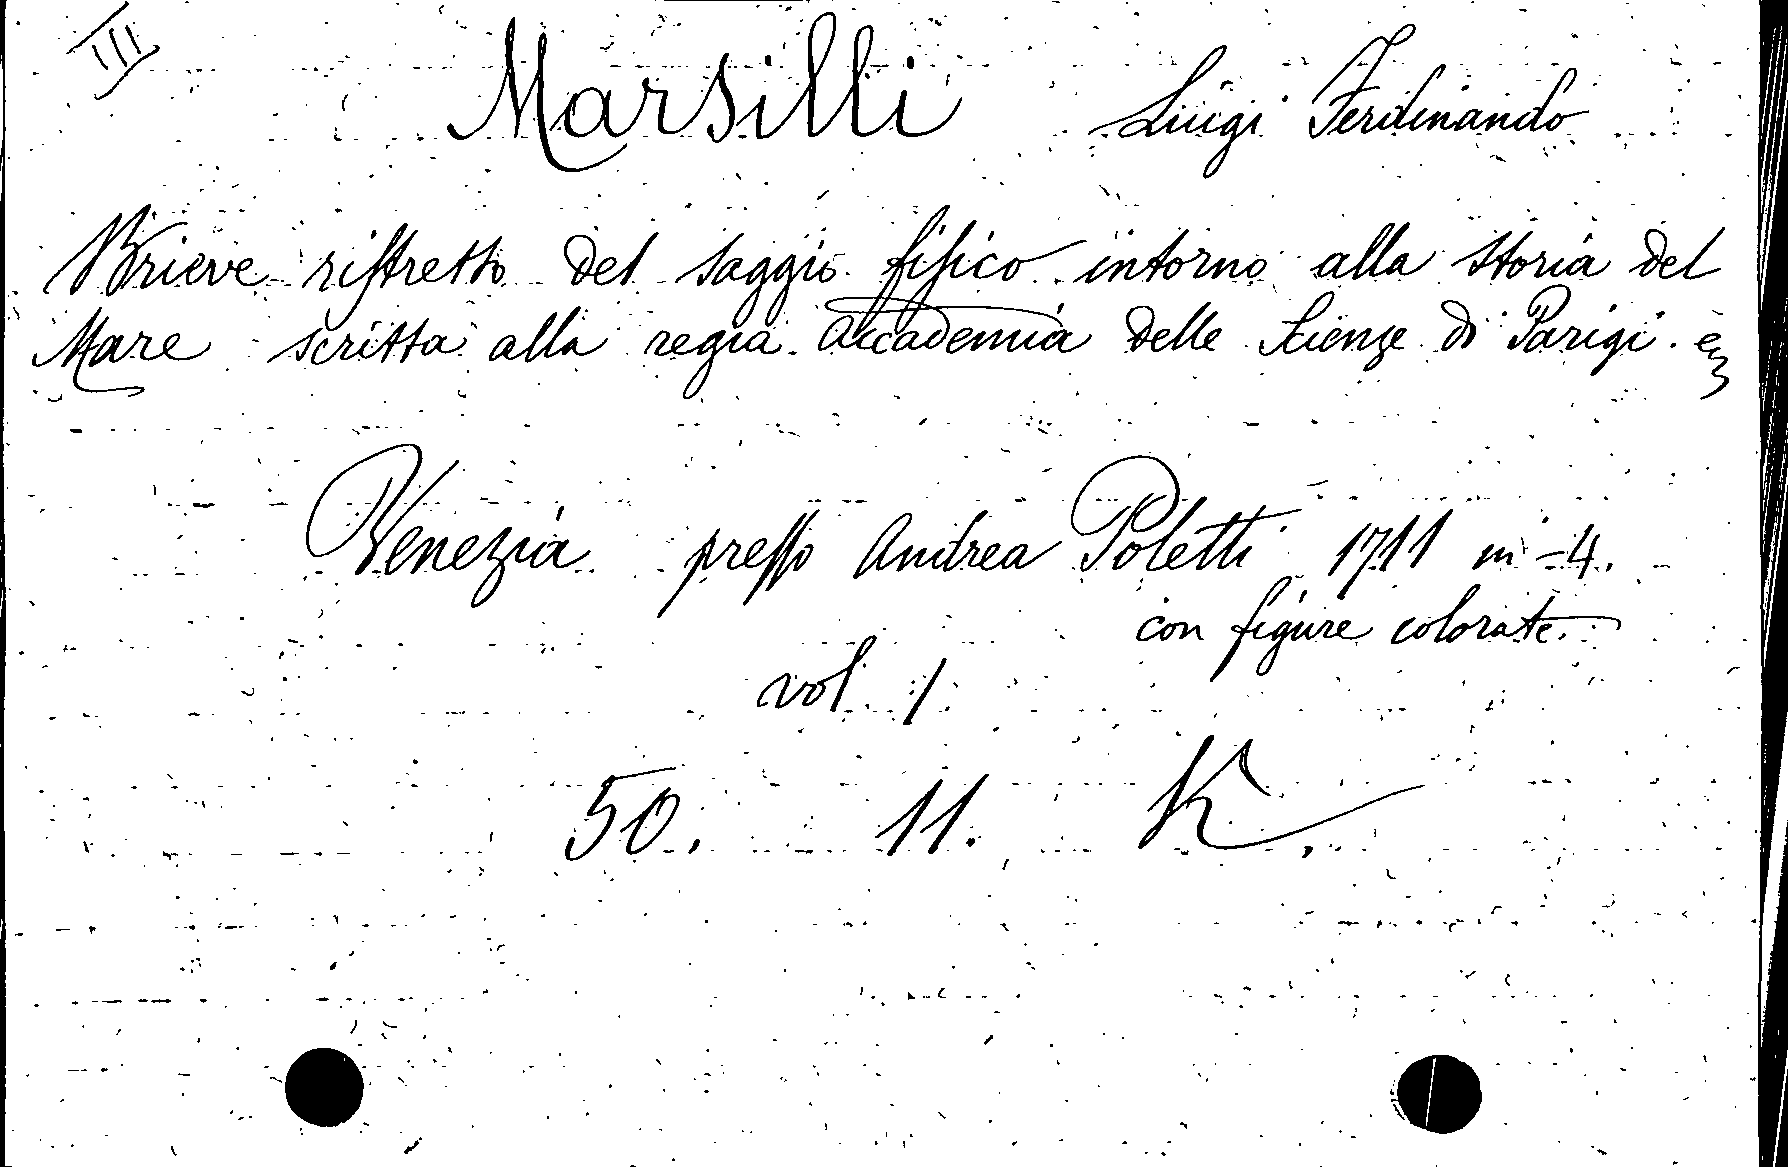 III
Marsilli Luigi Ferdinando
Brieve riſtretto del saggio fiſico intorno alla storia del
Mare scritta alla regia accademia delle Scienze di Parigi.
Venezia preſſo Andrea Poletti 1711 in-4.
con figure colorate.
vol. 1
50. 11. K.